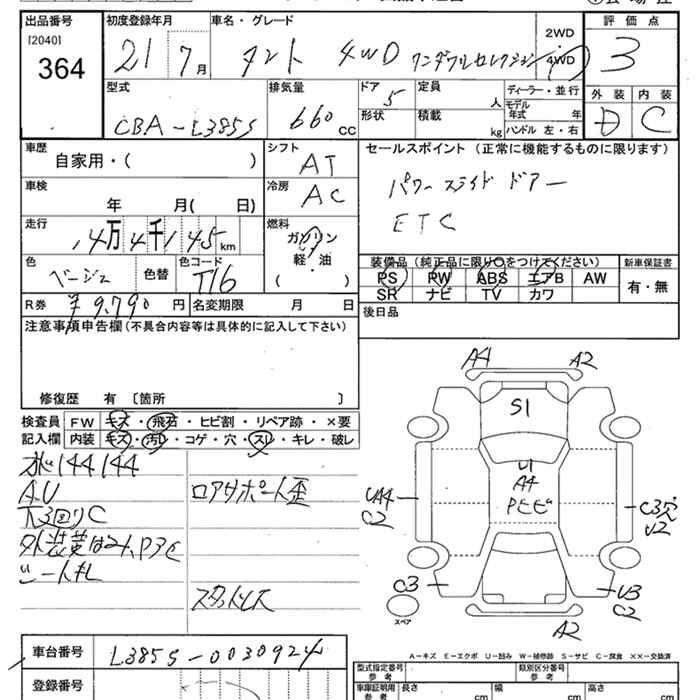 出品番号 初度登録年月 車名・グレード 2WD 評価点
[2040] 364 21年 7月 タント 4WD ワンダフルセレクション 4WD 3
型式 排気量 ドア 5 定員 人 ディーラー・並行 外装 内装
CBA-L385S 660 CC 形状 積載 kg モデル年式 年 ハンドル 左・右 D C
車歴 シフト セールスポイント (正常に機能するものに限ります)
自家用・( ) AT パワースライドドアー
車検 冷房 ETC
年 月( 日) AC
走行 燃料
14万4千145km ガソリン
軽・油
( )
装備品 (純正品に限り○をつけてください) 新車保証書
PS PW ABS エアB AW 有・無
SR ナビ TV カワ
色 色替 色コード
ベージュ T16
R券 ¥9,790 円 名変期限 月 日 後日品
注意事項申告欄 (不具合内容等は具体的に記入して下さい)
修復歴 有 〔箇所 〕
検査員 FW キズ・飛石・ヒビ割・リペア跡・×要
記入欄 内装 キズ・汚レ・コゲ・穴・スレ・キレ・破レ
144144
AU ロアサポート歪
下回りC
シート
スタットレス
A4 A2
S1
U1
A4
Pヒビ
UA4
C2
C3穴
U2
C3
U3
C2
A2
スペア
A-キズ E-エクボ U-凹み W-補修跡 S-サビ C-腐食 ××-交換済
車台番号 L385S-0030924
登録番号
型式指定番号 参考 類別区分番号 参考
車庫証明用 参考 長さ cm 幅 cm 高さ cm